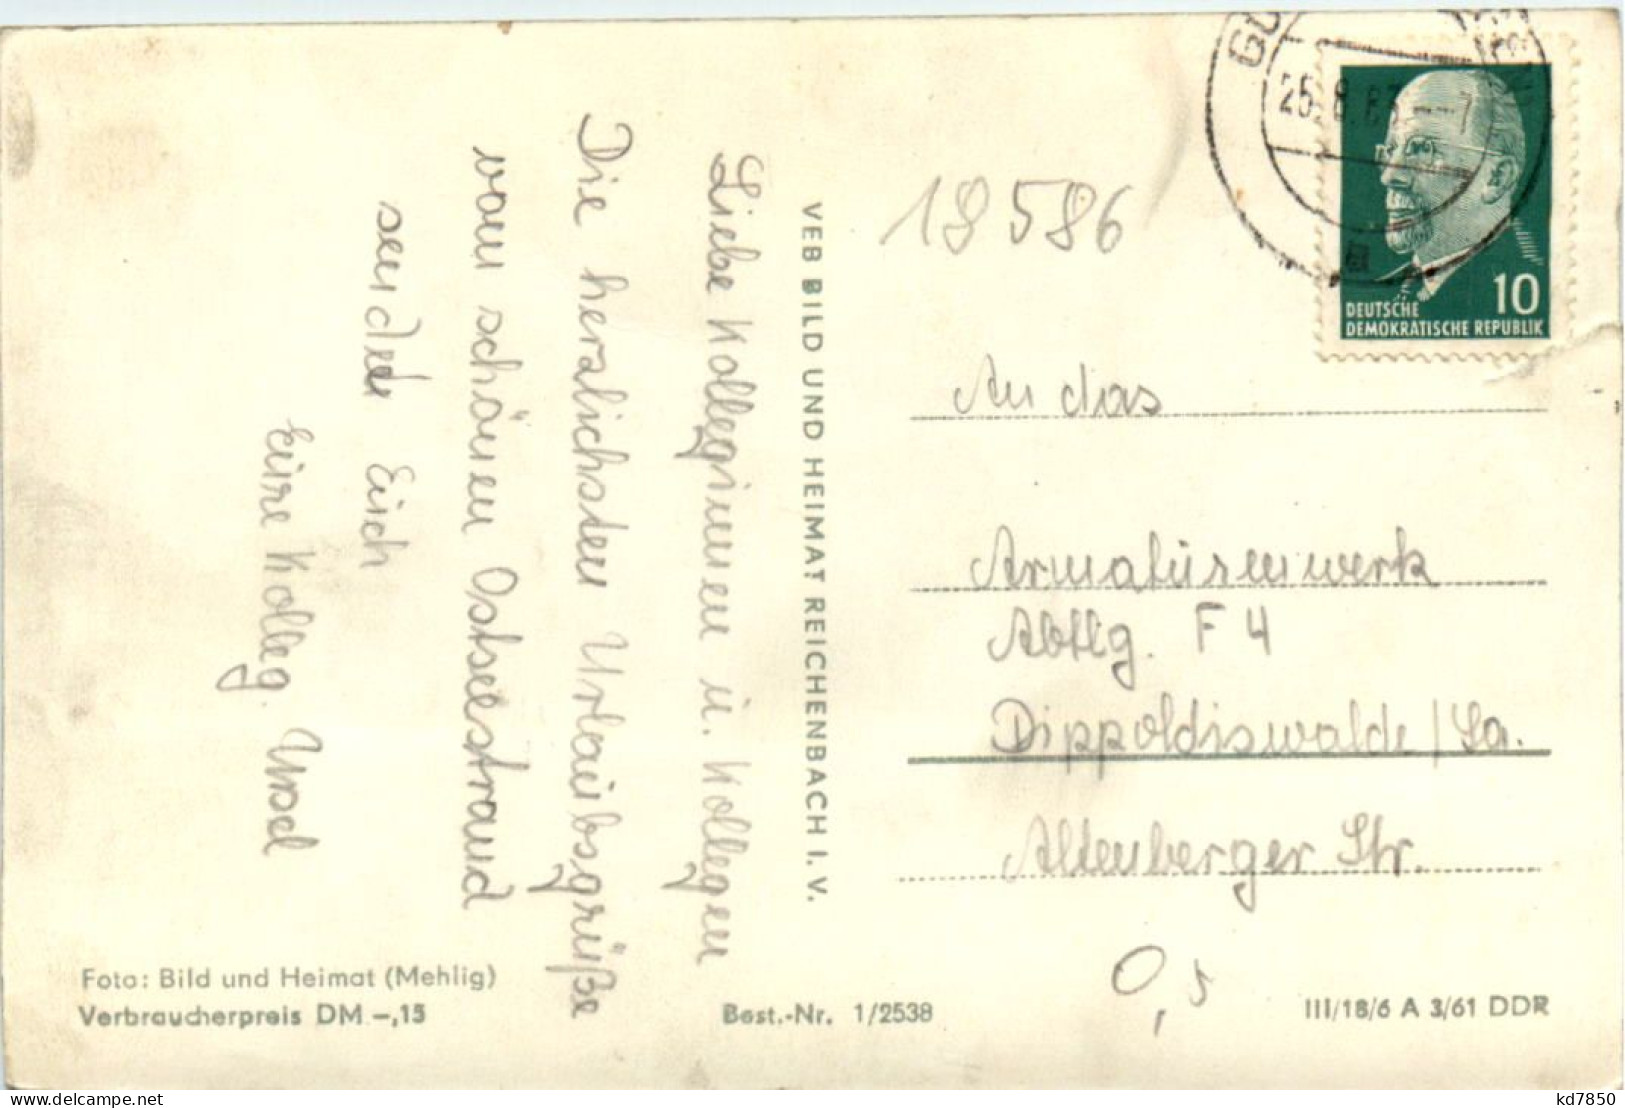 Liebe Kolleginnen u. Kollegen
Die herzlichsten Urlaubsgrüße
vom schönen Ostseestrand
sendet Euch
Eure Kolleg. Ursel
VEB BILD UND HEIMAT REICHENBACH I. V.
18586
25.8.6
DEUTSCHE
DEMOKRATISCHE REPUBLIK
10
An das
Armaturenwerk
Abtlg. F4
Dippoldiswalde/Sa.
Altenberger Str.
0,5
Foto: Bild und Heimat (Mehlig)
Verbraucherpreis DM -,15
Best.-Nr. 1/2538
III/18/6 A 3/61 DDR
www.delcampe.net
kd7850